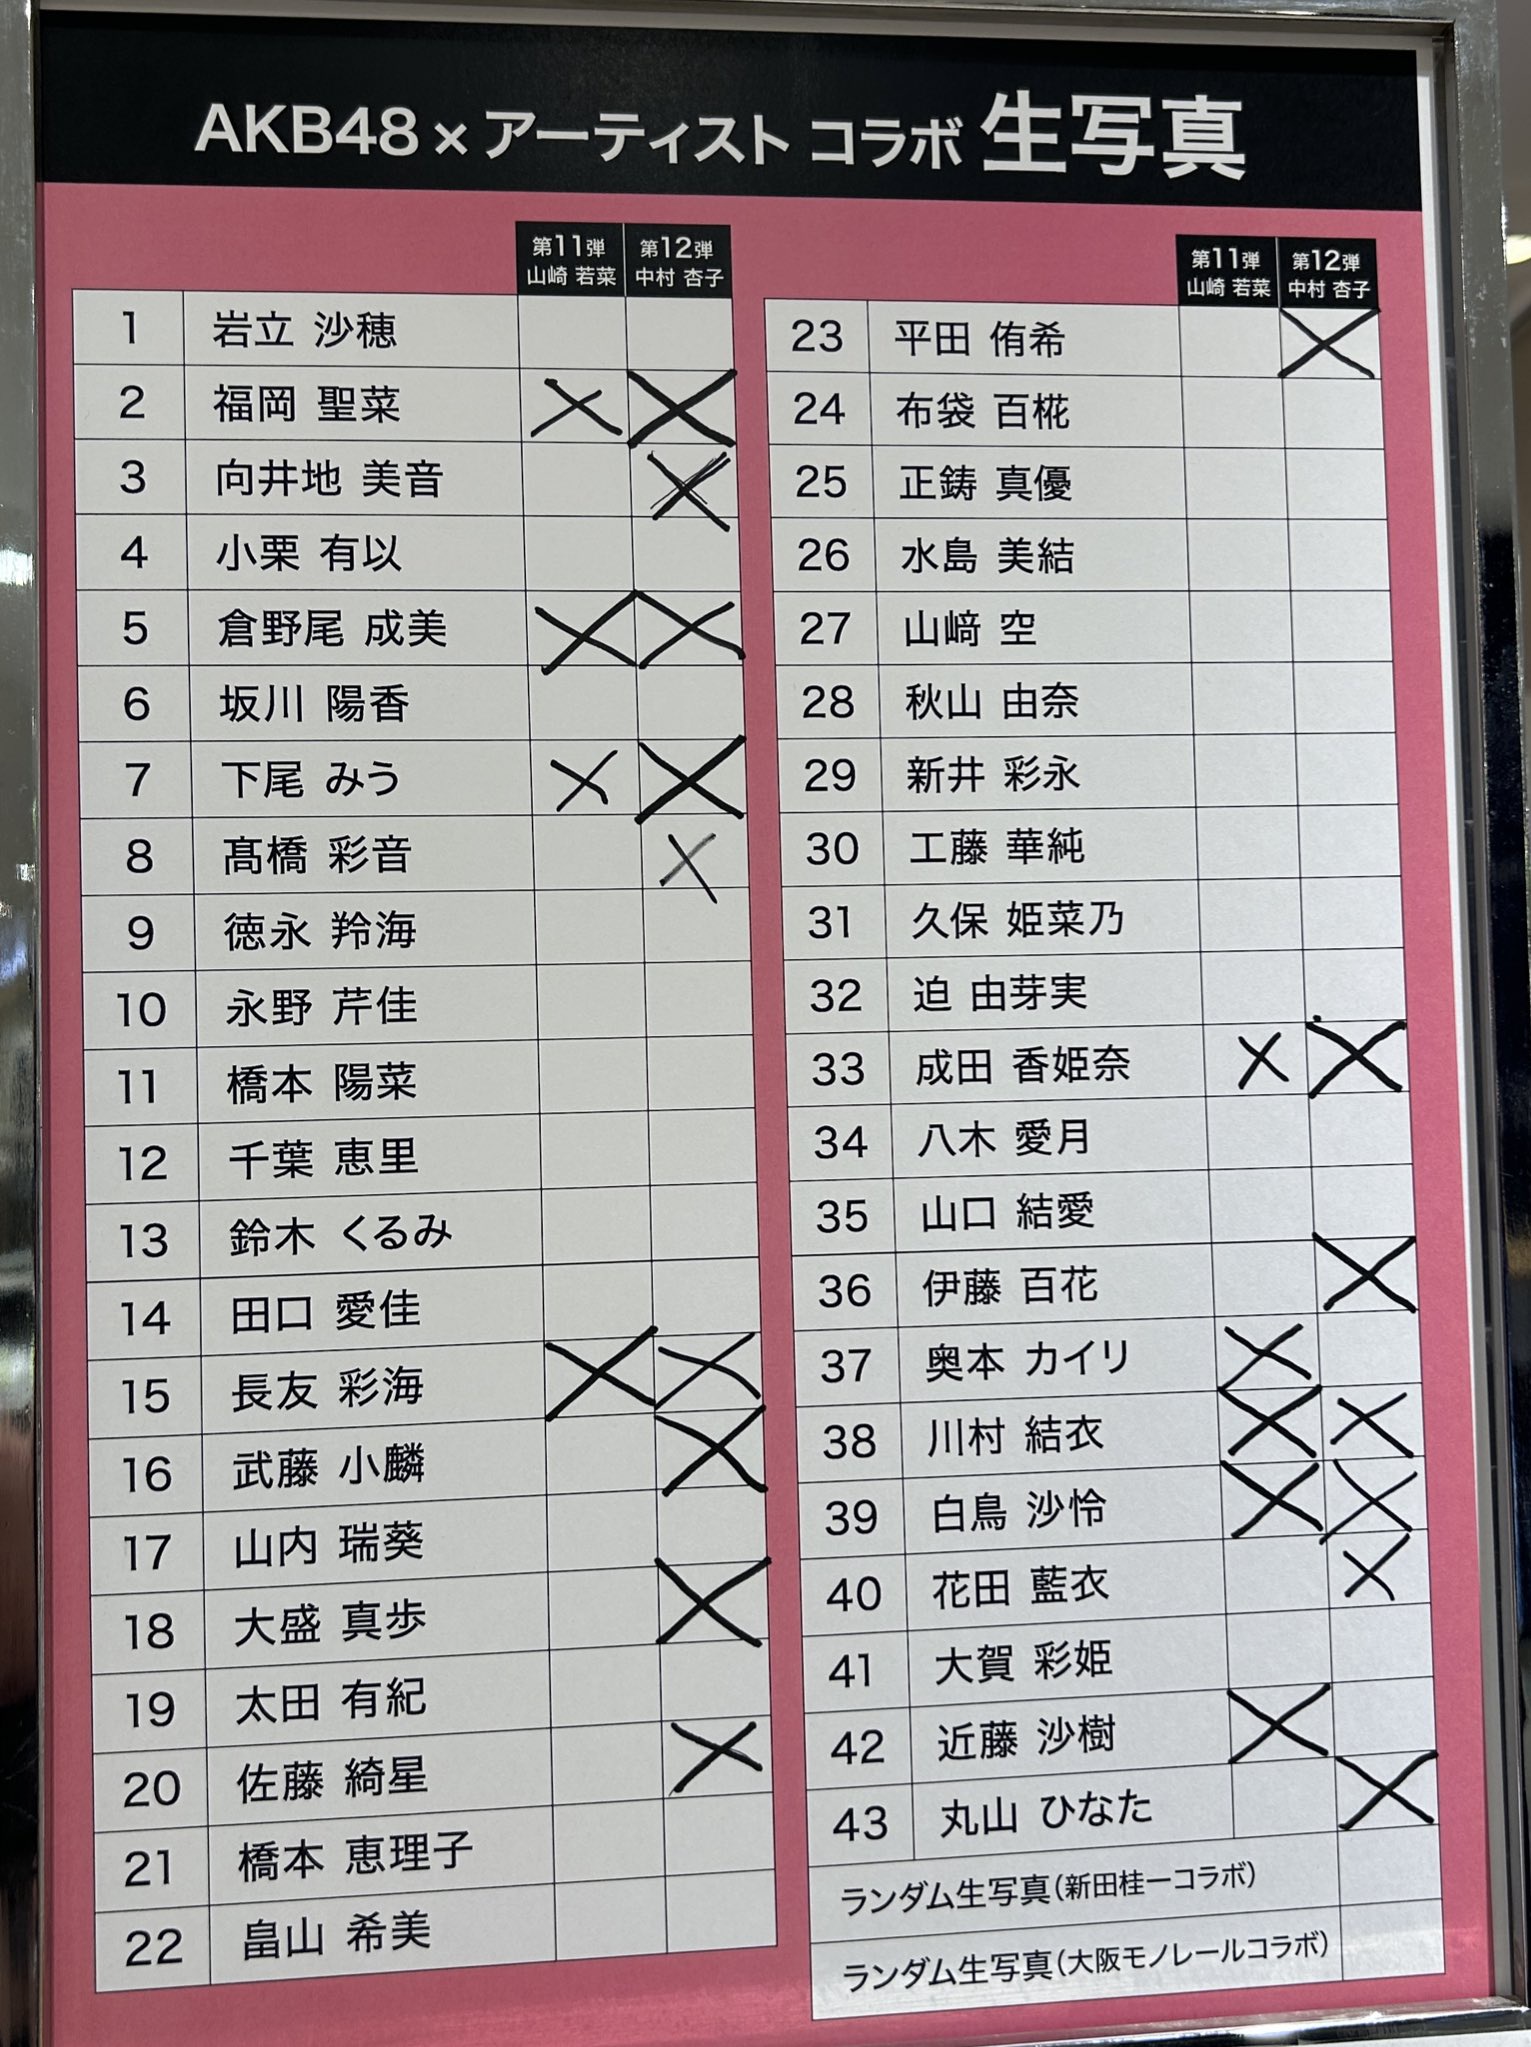 AKB48 × アーティスト コラボ 生写真
第11弾 山崎 若菜
第12弾 中村 杏子
1 岩立 沙穂
2 福岡 聖菜 × ×
3 向井地 美音 ×
4 小栗 有以
5 倉野尾 成美 × ×
6 坂川 陽香
7 下尾 みう × ×
8 髙橋 彩音 ×
9 徳永 羚海
10 永野 芹佳
11 橋本 陽菜
12 千葉 恵里
13 鈴木 くるみ
14 田口 愛佳
15 長友 彩海 × ×
16 武藤 小麟 ×
17 山内 瑞葵
18 大盛 真歩 ×
19 太田 有紀
20 佐藤 綺星 ×
21 橋本 恵理子
22 畠山 希美
第11弾 山崎 若菜
第12弾 中村 杏子
23 平田 侑希 ×
24 布袋 百椛
25 正鋳 真優
26 水島 美結
27 山﨑 空
28 秋山 由奈
29 新井 彩永
30 工藤 華純
31 久保 姫菜乃
32 迫 由芽実
33 成田 香姫奈 × ×
34 八木 愛月
35 山口 結愛
36 伊藤 百花 ×
37 奥本 カイリ ×
38 川村 結衣 × ×
39 白鳥 沙怜 × ×
40 花田 藍衣 ×
41 大賀 彩姫
42 近藤 沙樹 ×
43 丸山 ひなた ×
ランダム生写真(新田桂一コラボ)
ランダム生写真(大阪モノレールコラボ)